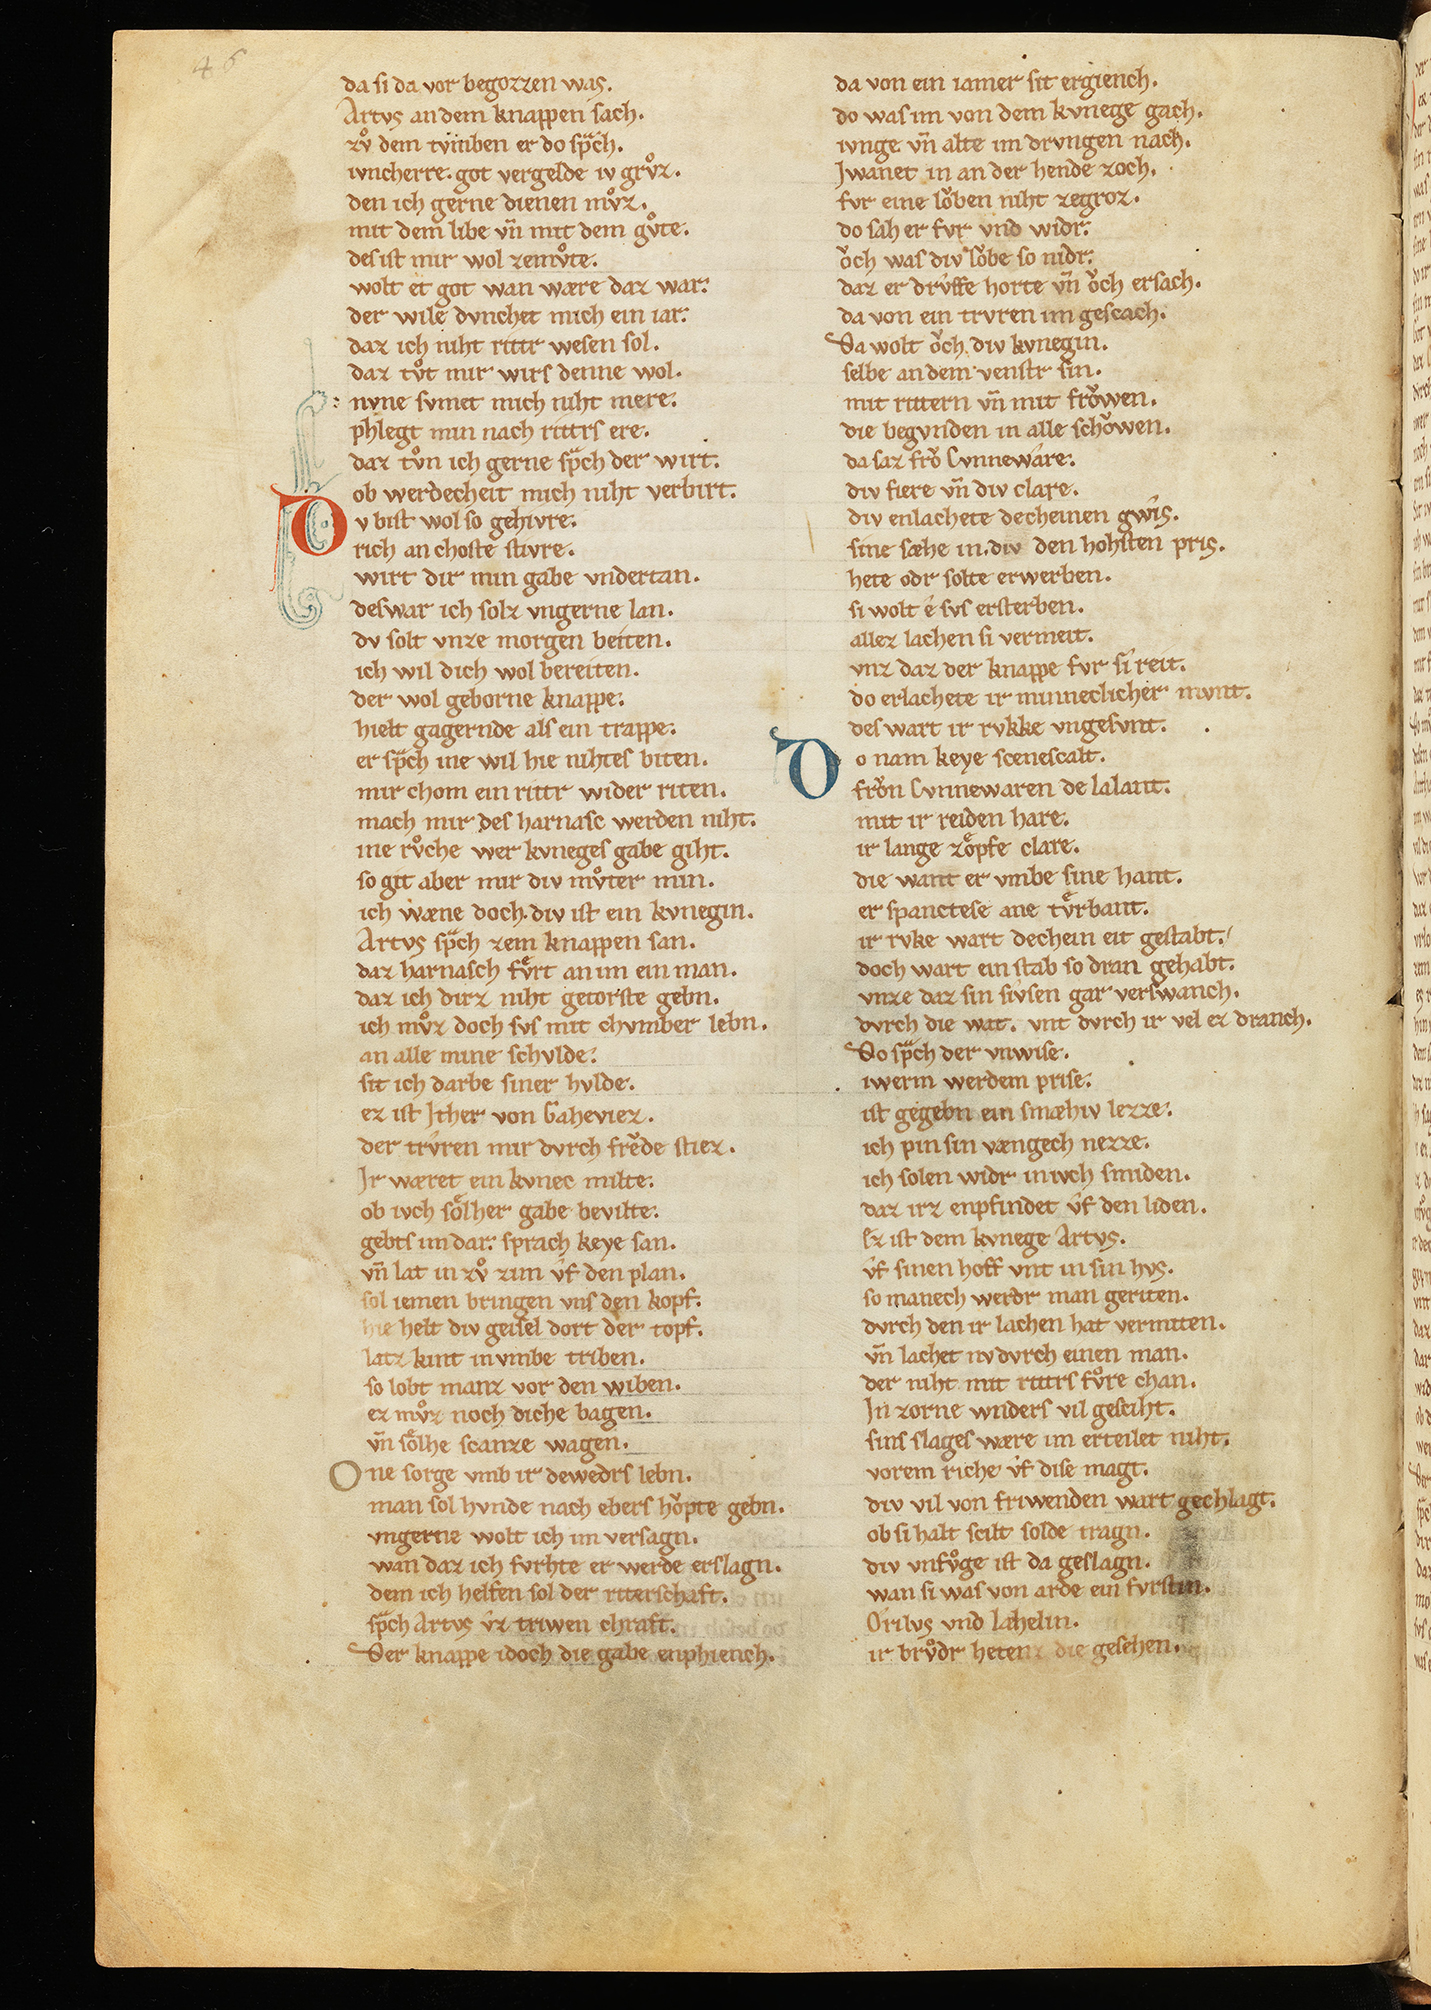 46
da si da vor begozzen was.
Artvs an dem knappen sach.
zvͦ dem tvmben er do sp̃ch.
ivncherre. got vergelde iv grvͦz.
den ich gerne dienen mvͦz.
mit dem libe vn̄ mit dem gvͦte.
des ist mir wol zemvͦte.
wolt et got wan wære daz war.
der wile dvnchet mich ein iar.
daz ich niht rittr wesen sol.
daz tvͦt mir wirs denne wol.
nvne svmet mich niht mere.
phlegt min nach rittrs ere.
daz tvͦn ich gerne sp̃ch der wirt.
ob werdecheit mich niht verbirt.
Dv bist wol so gehivre.
rich an choste stivre.
wirt dir min gabe vndertan.
deswar ich solz vngerne lan.
dv solt vnze morgen beiten.
ich wil dich wol bereiten.
der wol geborne knappe.
hielt gagernde als ein trappe.
er sp̃ch ine wil hie nihtes biten.
mir chom ein rittr wider riten.
mach mir des harnasc werden niht.
ine rvͦche wer kvneges gabe giht.
so git aber mir div mvͦter min.
ich wæne doch. div ist ein kvnegin.
Artvs sp̃ch zem knappen san.
daz harnasch fvͤrt an im ein man.
daz ich dirz niht getorste gebn.
ich mvͦz doch svs mit chvmber lebn.
an alle mine schvlde.
sit ich darbe siner hvlde.
ez ist Jther von Gaheviez.
der trvren mir dvrch frevͤde stiez.
Ir wæret ein kvnec milte.
ob ivch soͤlher gabe bevilte.
gebts im dar. sprach keye san.
vn̄ lat in zvͦ zim vf den plan.
sol iemen bringen vns den kopf.
hie helt div geisel dort der topf.
latz kint in vmbe triben.
so lobt manz vor den wiben.
ez mvͦz noch diche bagen.
vn̄ soͤlhe scanze wagen.
One sorge vmb ir dewedrs lebn.
man sol hvnde nach ebers hoͮpte gebn.
vngerne wolt ich im versagn.
wan daz ich fvrhte er werde erslagn.
dem ich helfen sol der riterschaft.
sp̃ch Artvs vz triwen chraft.
Der knappe idoch die gabe enphiench.
da von ein iamer sit ergiench.
do was im von dem kvnege gach.
ivnge vn̄ alte im drvngen nach.
Jwanet in an der hende zoch.
fvr eine loͮben niht zegroz.
do sah er fvr vnd widr.
oͮch was div loͮbe so nidr.
daz er drvffe horte vn̄ oͮch ersach.
da von ein trvren im gescach.
Da wolt oͮch div kvnegin.
selbe an dem venstr sin.
mit rittern vn̄ mit froͮwen.
die begvnden in alle schoͮwen.
da saz froͮ Cvnneware.
div fiere vn̄ div clare.
div enlachete decheinen gwis.
sine sæhe in. div den hohsten pris.
hete odr solte erwerben.
si wolt e svs ersterben.
allez lachen si vermeit.
vnz daz der knappe fvr si reit.
do erlachete ir minneclicher mvnt.
des wart ir rvkke vngesvnt.
Do nam keye scenescalt.
froͮn Cvnnewaren de lalant.
mit ir reiden hare.
ir lange zoͤpfe clare.
die want er vmbe sine hant.
er spanctese ane tvͤrbant.
ir rvke wart dechein eit gestabt.
doch wart ein stab so dran gehabt.
vnze daz sin sivsen gar verswanch.
dvrch die wat. vnt dvrch ir vel ez dranch.
Do sp̃ch der vnwise.
iwerm werdem prise.
ist gegebn ein smæhiv lezze.
ich pin sin vængech nezze.
ich solen widr in ivch smiden.
daz irz enpfindet vf den liden.
Ez ist dem kvnege Artvs.
vf sinen hoff vnt in sin hvs.
so manech werdr man geriten.
dvrch den ir lachen hat vermiten.
vn̄ lachet nv dvrch einen man.
der niht mit rittrs fvͦre chan.
In zorne wnders vil gesciht.
sins slages wære im erteilet niht.
vorem riche vf dise magt.
div vil von friwenden wart gechlagt.
ob si halt scilt solde tragn.
div vnfvͦge ist da geslagn.
wan si was von arde ein fvrstin.
Orilvs vnd lahelin.
ir brvͦdr heten die gesehen.